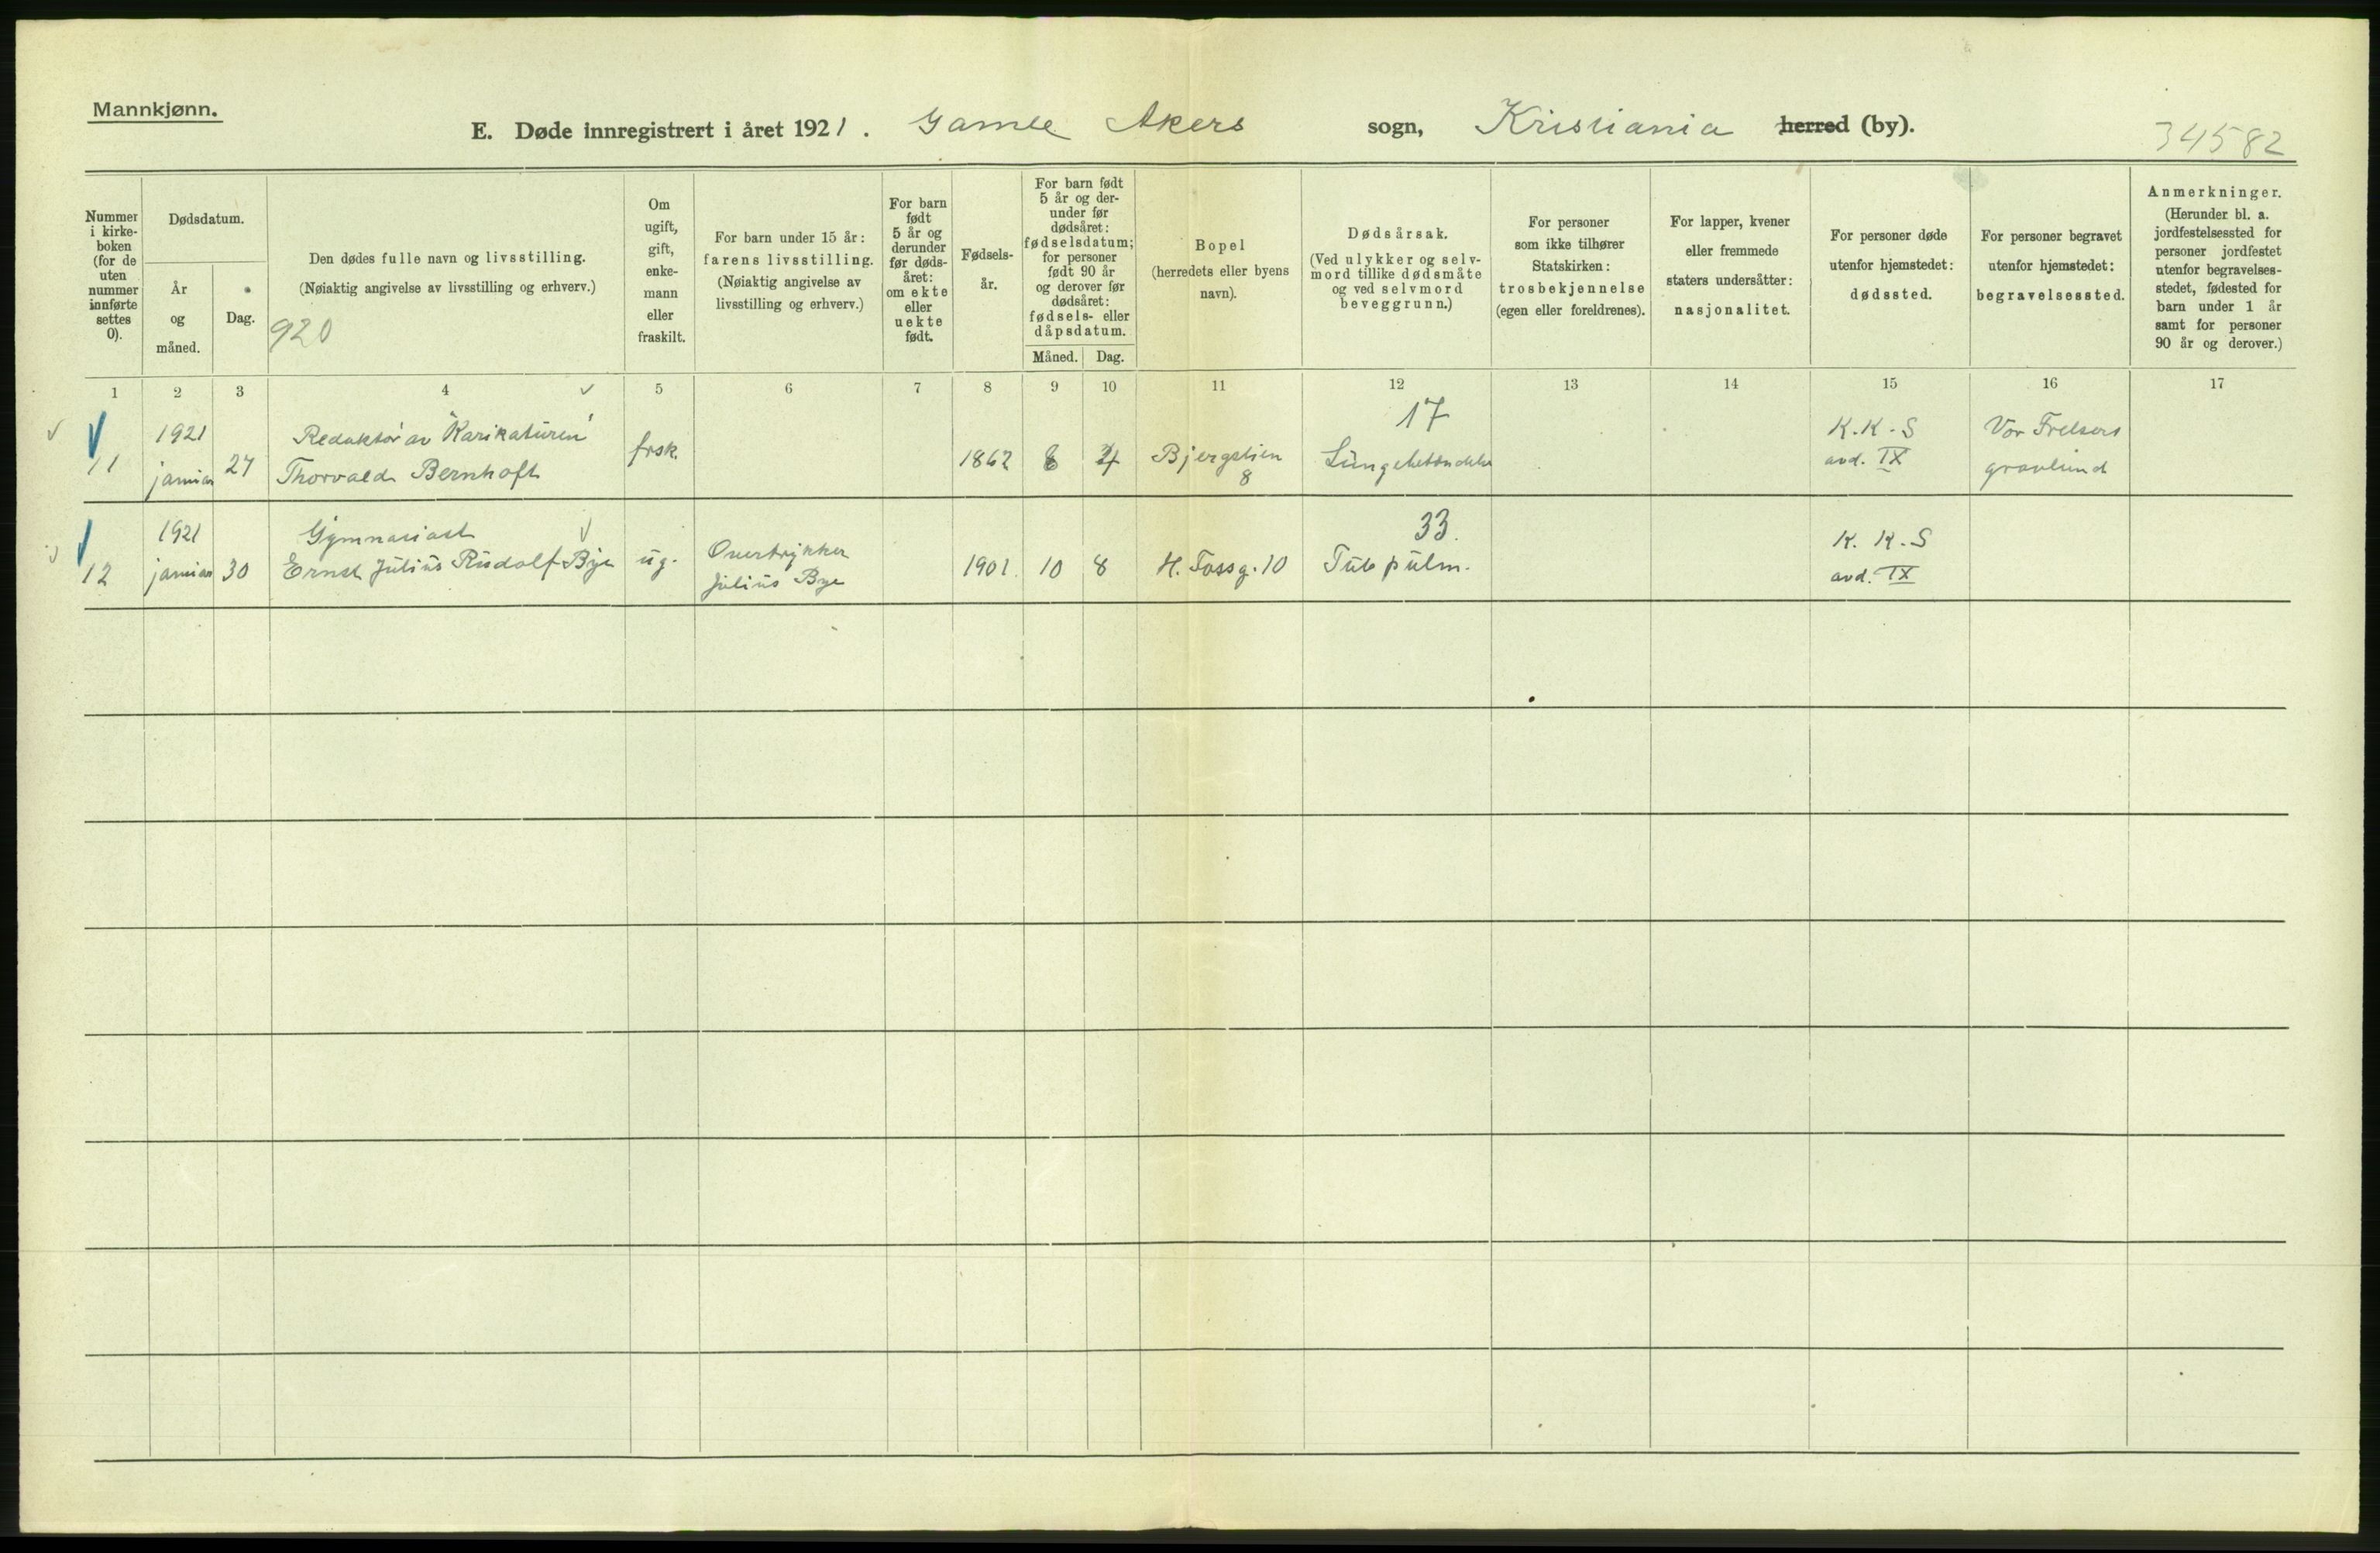 Mannkjønn.
E. Døde innregistrert i året 1921. Gamle Akers sogn, Kristiania herred (by).
34582
Nummer i kirke-boken (for de uten nummer innførte settes 0).
Dødsdatum.
År og måned.
Dag.
Den dødes fulle navn og livsstilling.
(Nøiaktig angivelse av livsstilling og erhverv.)
920
Om ugift, gift, enke-mann eller fraskilt.
For barn under 15 år: farens livsstilling.
(Nøiaktig angivelse av livsstilling og erhverv.)
For barn født 5 år og derunder før døds-året: om ekte eller uekte født.
Fødsels-år.
For barn født 5 år og der-under før dødsåret: fødselsdatum; for personer født 90 år og derover før dødsåret: fødsels- eller dåpsdatum.
Måned. Dag.
Bopel
(herredets eller byens navn).
Dødsårsak.
(Ved ulykker og selv-mord tillike dødsmåte og ved selvmord beveggrunn.)
For personer som ikke tilhører Statskirken: trosbekjennelse (egen eller foreldrenes).
For lapper, kvener eller fremmede staters undersåtter: nasjonalitet.
For personer døde utenfor hjemstedet: dødssted.
For personer begravet utenfor hjemstedet: begravelsessted.
Anmerkninger.
(Herunder bl. a. jordfestelsessted for personer jordfestet utenfor begravelses-stedet, fødested for barn under 1 år samt for personer 90 år og derover.)
1 2 3 4 5 6 7 8 9 10 11 12 13 14 15 16 17
11 1921 januar 27 Redaktør av "Karikaturen" Thorvald Bernhoft frsk. 1862 8 Bjergstien 8 17 K.K.S avd. IX Vor Frelsers gravlund
12 1921 januar 30 Gymnasiast Ernst Julius Rudolf Bye ug. Overtrykker Julius Bye 1901 10 8 H. Tossg. 10 33. Tub pulm. K.K.S avd. IX